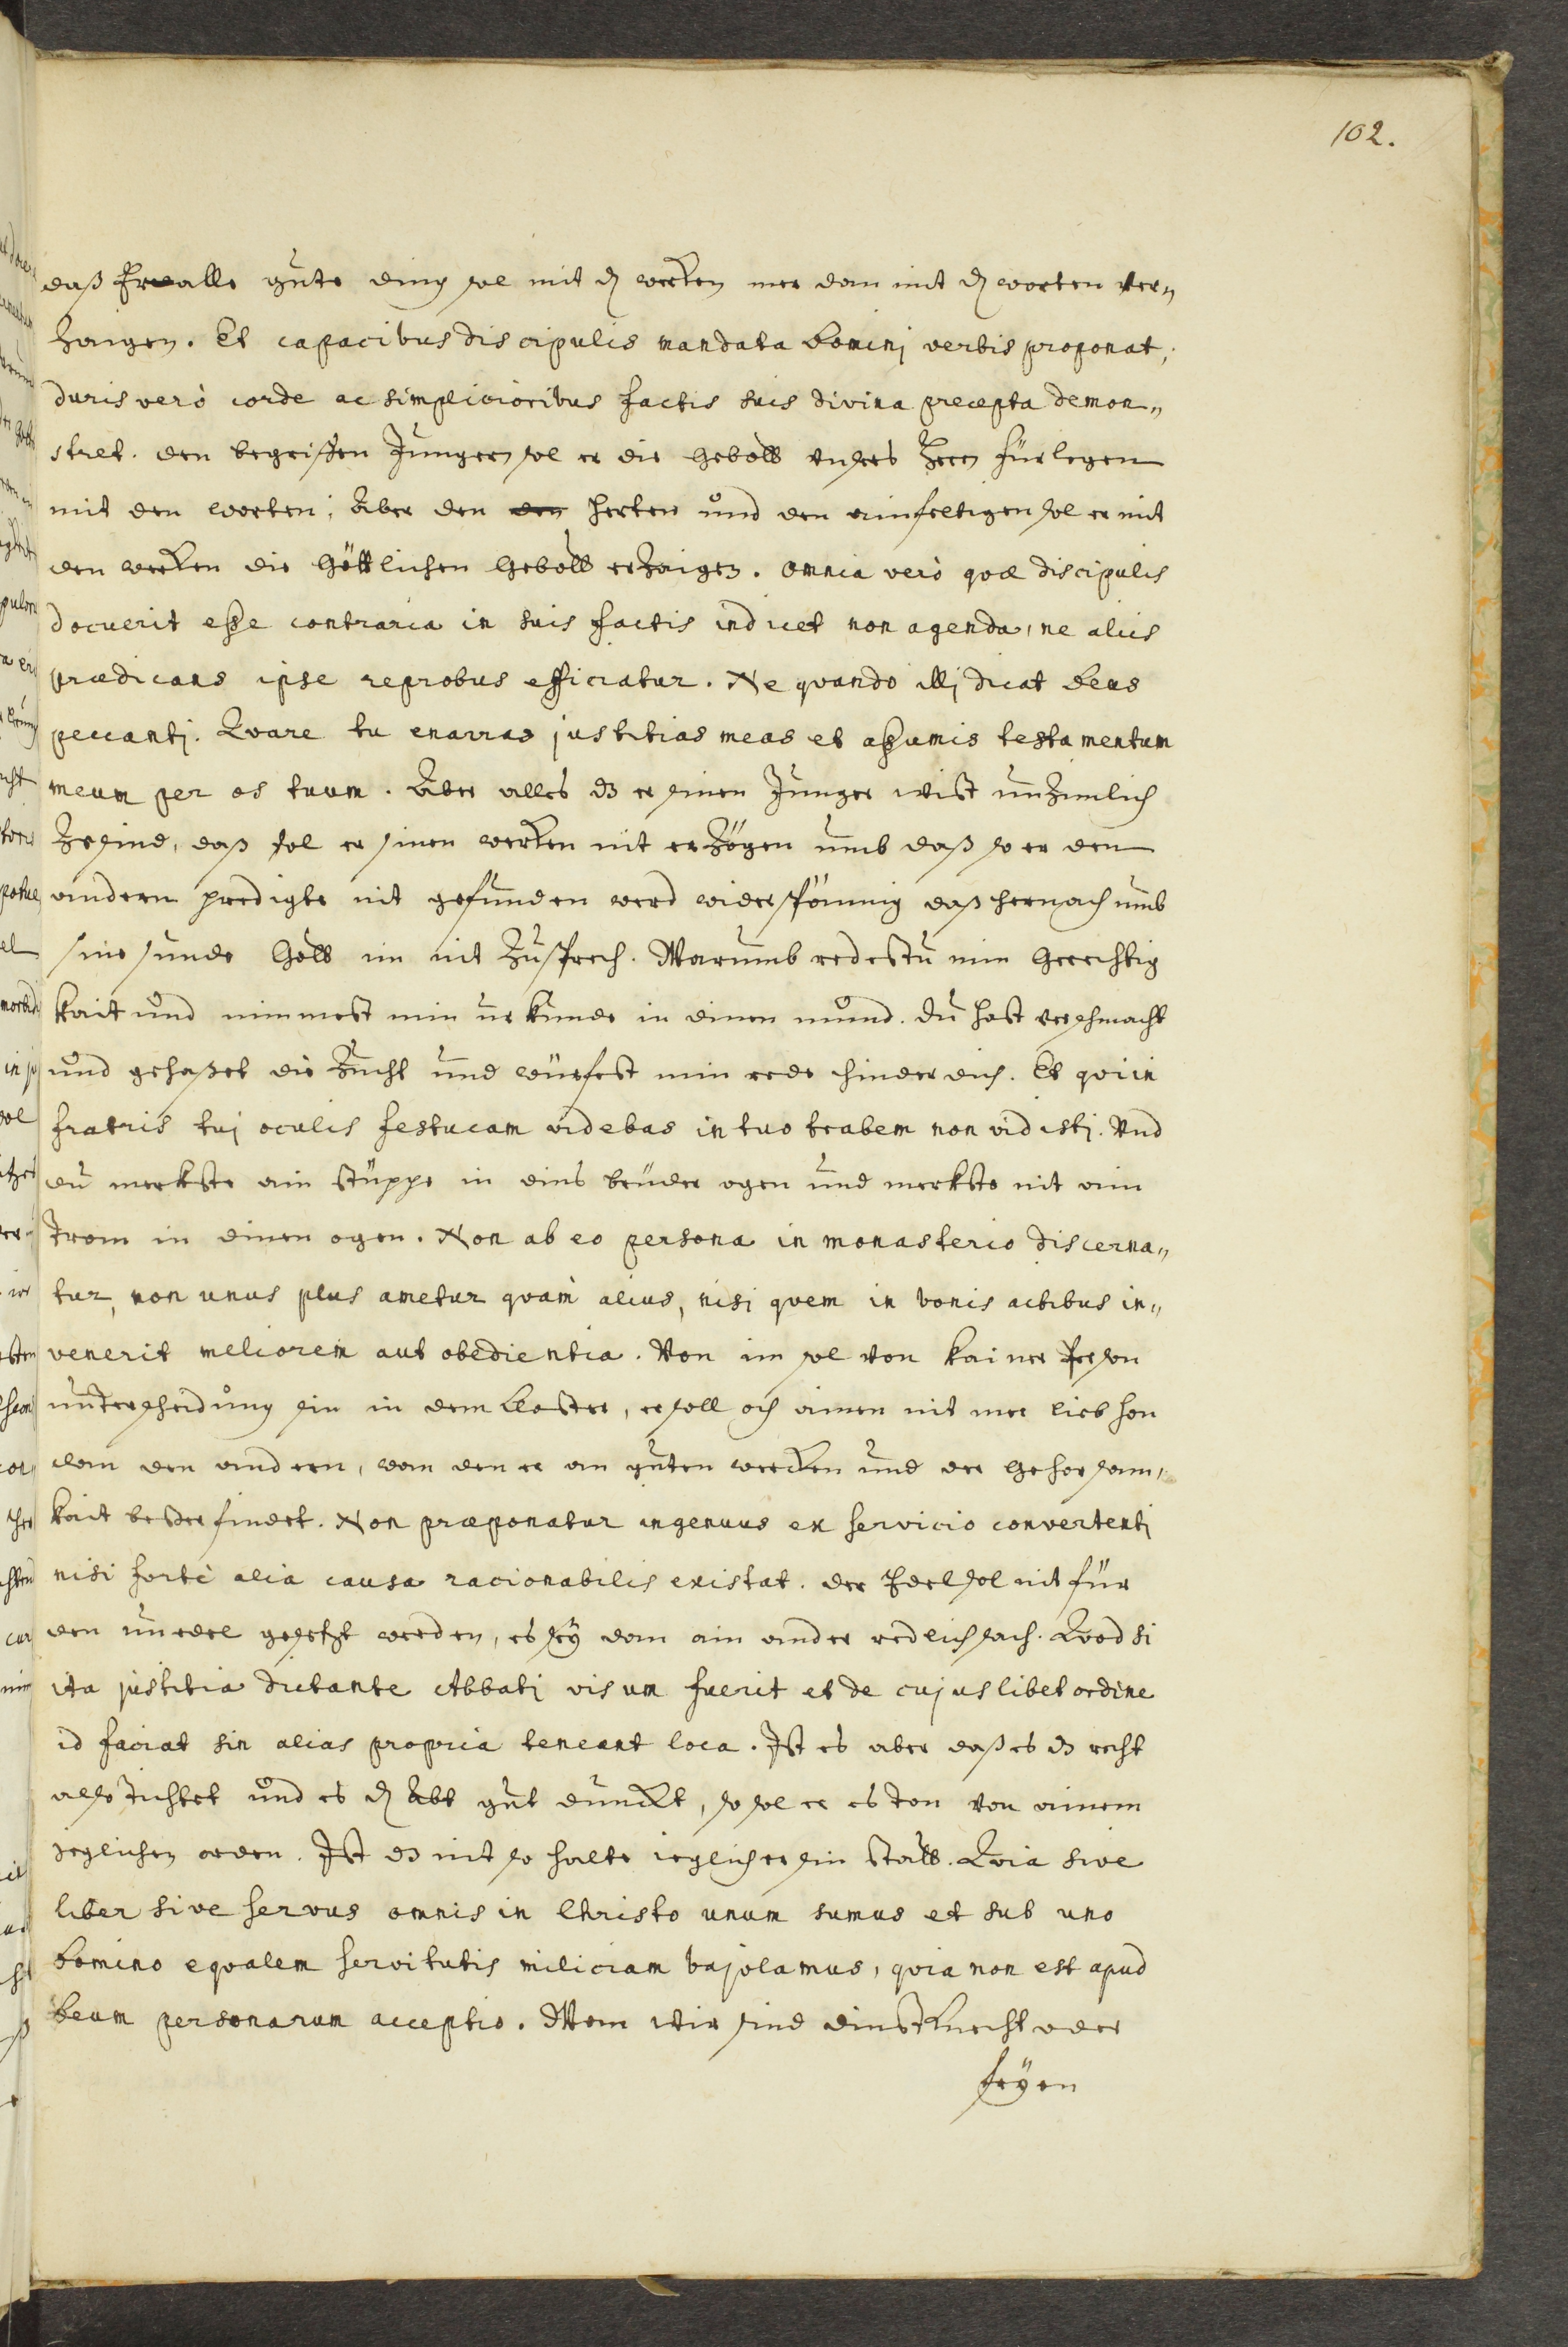 102.
daß Er alle gute ding sol mit dē werken mer dan mit dē worten ver„
zaigen. Et capacibus discipulis mandata Dominj verbis proponat,
duris verò corde ac simplicioribus factis suis divina precepta demon„
stret. den begriffen Jungern sol er die Gebott unsers Hern fürlegen
mit den worten; Aber den herten und den ainfeltigen sol er mit
den werken die Göttlichen Gebott erzaigen. omnia verò qvæ discipulis
docuerit esse contraria in suis factis indicet non agenda, ne aliis
prædicans ipse reprobus efficiatur. Ne qvando illj dicat Deus
peccantj. Qvare tu enarras justitias meas et assumis testamentum
meum per os tuum. Aber alles dz er sinen Junger wist unzimlich
ze sind, daß sol er sinen werken nit erzögen umb daß so er den
andern predigte nit gefunden werd widerspönnig daß hernach umb
sine sunde Gott im nit zusprech. Warumb redestu min Gerechtig
kait und nimmest min urkunde in dinen mund. du hast verschmacht
und gehasset die zucht und würfest min rede hinder dich. Et qvi in
fratris tuj oculis festucam videbas in tuo trabem non vidistj. Und
du merkste ain stüppe in dins bruder ogen und merkste nit ain
trom in dinen ogen. Non ab eo persona in monasterio discerna„
tur, non unus plus ametur qvam alius, nisi qvem in bonis actibus in„
venerit meliorem aut obedientia. Von im sol von kainer Person
underscheidung sin in dem Closter, er soll och ainen nit mer lieb hon
dan den andern, dan den er an guten werken und der Gehorsam„
kait besser findet. Non præponatur ingenuus ex servicio convertenti
nisi fortè alia causa racionabilis existat. der Edel sol nit für
den unedel gesetzt werden, es sey dan ain ander redlich sach. Qvod si
ita justitia dictante Abbatj visum fuerit et de cujuslibet ordine
id faciat sin alias propria teneant loca. Ist es aber daß es dz recht
also tichtet und es dē Abt gut dunckt, so sol er es ton von ainem
jeglichen orden. Ist dz nit so halte ieglicher sin statt. Qvia sive
liber sive servus omnis in Christo unum sumus et sub uno
Domino eqvalem servitutis miliciam bajolamus, qvia non est apud
Deum personarum acceptio. Wan wir sind dinstknecht oder
fryen